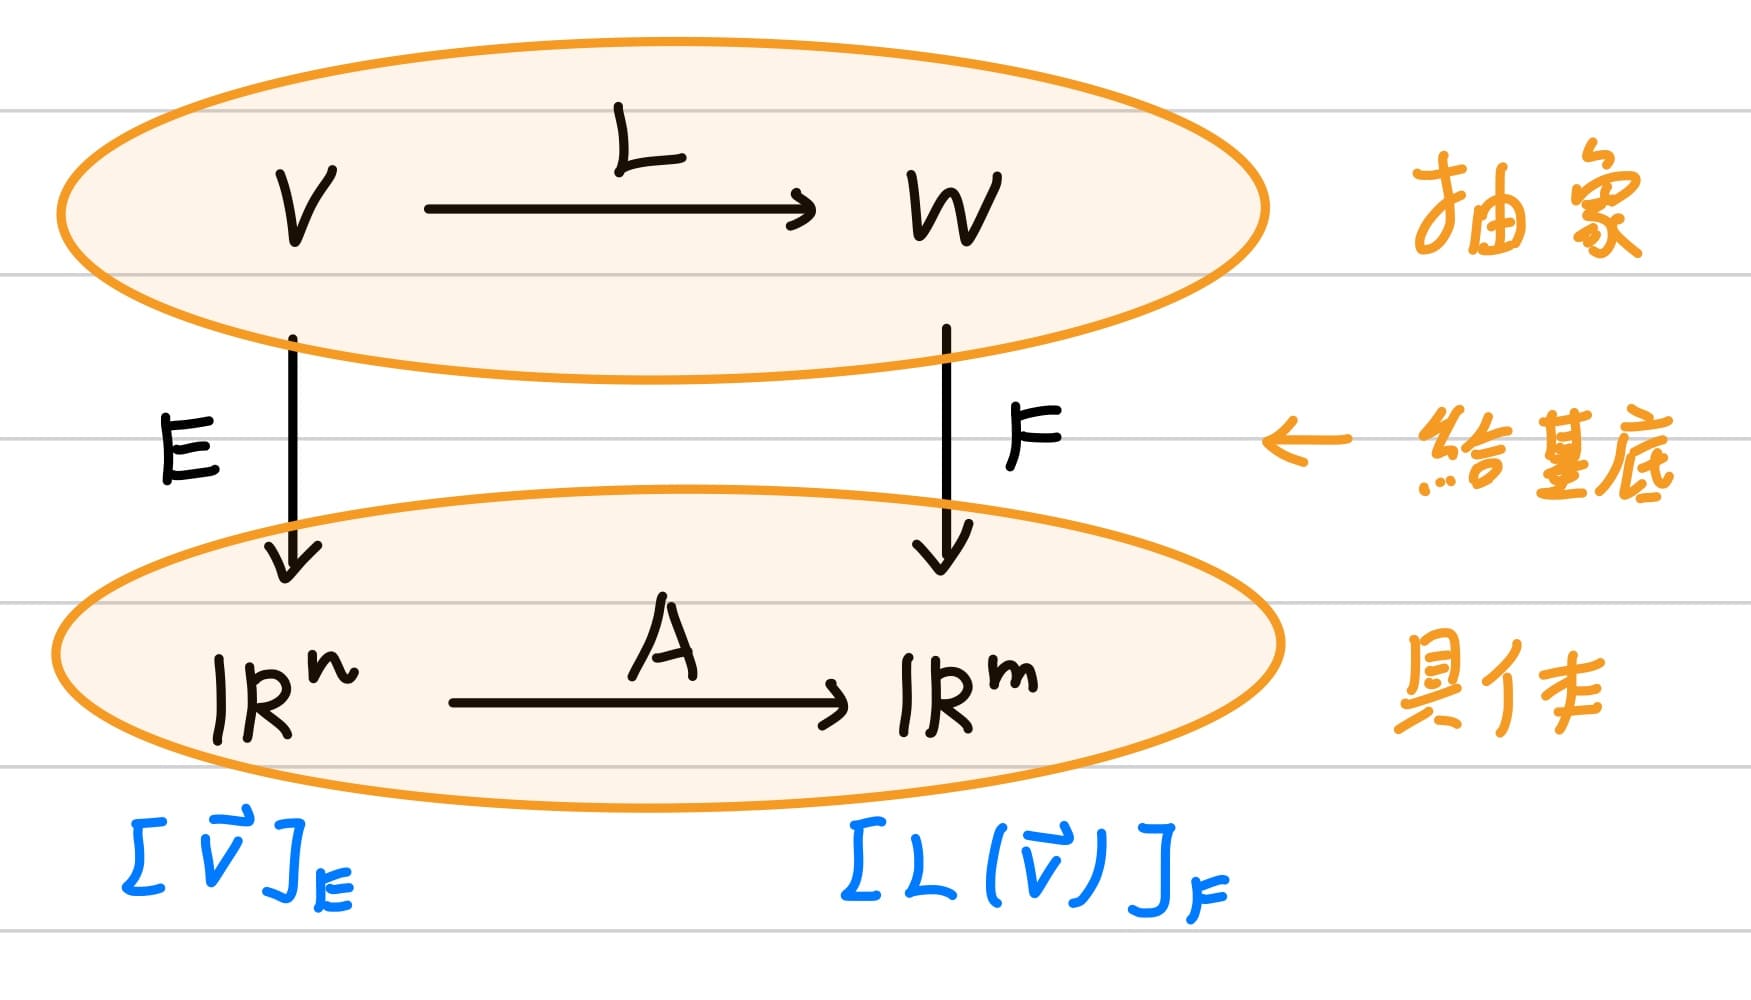 L
V → W 抽象
E F ← 給基底
A
ℝⁿ → ℝᵐ 具体
[v⃗]_E [L(v⃗)]_F